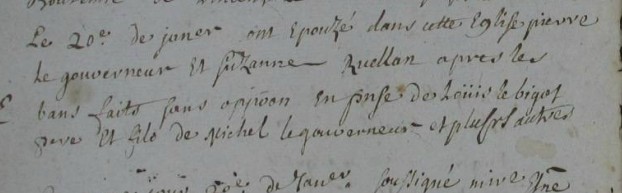 Le 20e. de janer ont Epouzé dans cette Eglise pierre
le gouverneur Et suzanne Ruellan apres les
bans faits sans oppoon En pnse de Loüis le bigot
pere Et fils de Michel le gouverneur et plusrs autres
de Janer soussigné